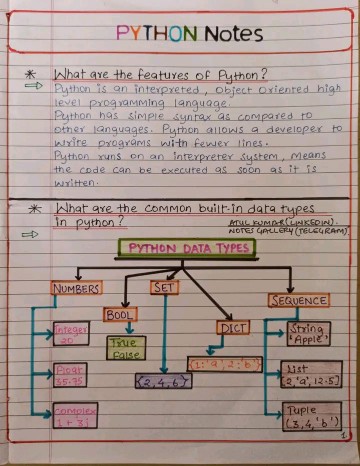 PYTHON Notes
* What are the features of Python?
⇒ Python is an interpreted, Object Oriented high
level programming language.
Python has simple syntax as compared to
other languages. Python allows a developer to
write programs with fewer lines.
Python runs on an interpreter system, means
the code can be executed as soon as it is
written.
* What are the common built-in data types
in python?
ATUL KUMAR (LINKEDIN).
NOTES GALLERY (TELEGRAM).
⇒
PYTHON DATA TYPES
NUMBERS
SET
SEQUENCE
BOOL
DICT
Integer
20
True
False
String
'Apple'
{1:'a', 2:'b'}
Float
35.75
{2,4,6}
List
[2,'a',12.5]
Complex
1 + 3j
Tuple
(3,4,'b')
1